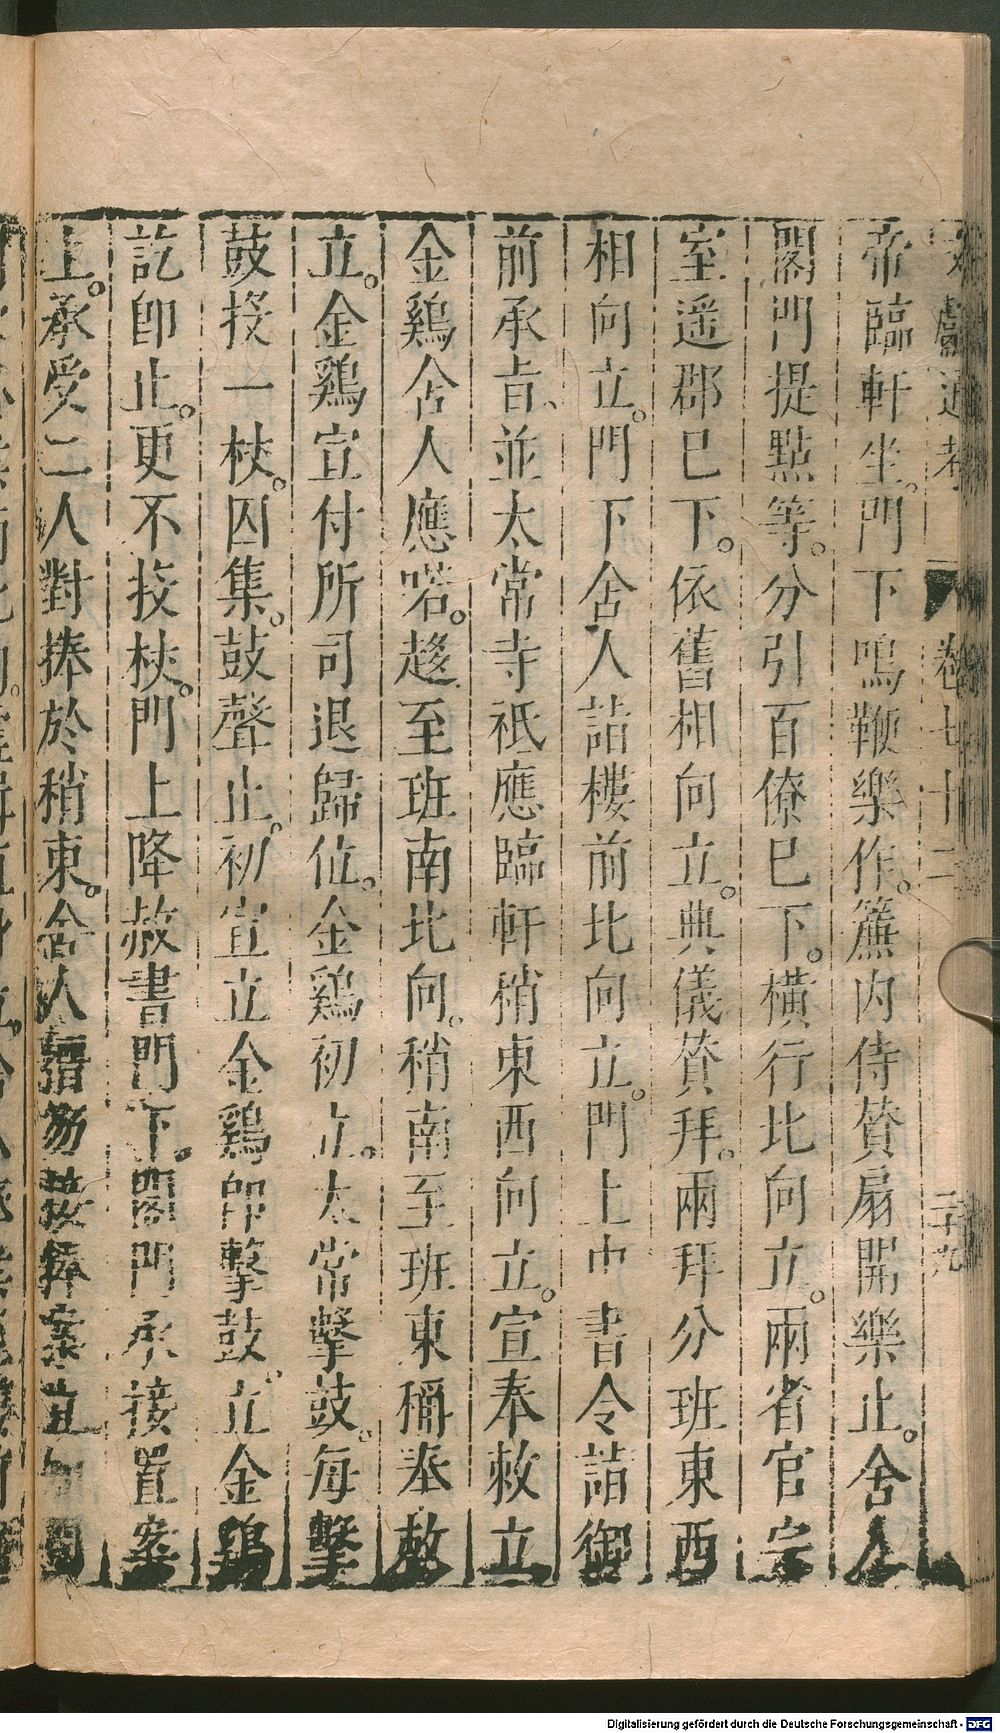 文獻通考 卷七十二 二十九
帝臨軒坐。門下鳴鞭樂作。簾内侍贊扇開樂止。舍人
閣門提點等。分引百僚巳下。橫行北向立。兩省官宗
室遥郡巳下。依舊相向立。典儀贊拜。兩拜分班東西
相向立。門下舍人詣樓前北向立。門上中書令詣御
前承旨、並太常寺祗應臨軒稍東西向立。宣奉敕立
金鷄舍人應喏。趍至班南北向。稍南至班東稱奉敕
立。金鷄宣付所司退歸位。金鷄初立。太常擊鼓。每擊
鼓投一杖。囚集。鼓聲止。初宣立金鷄即擊鼓。立金鷄
訖即止。更不投杖。門上降赦書門下。閣門承接置案
上。承受二人對捧於稍東。舍人搢笏
Digitalisierung gefördert durch die Deutsche Forschungsgemeinschaft - DFG